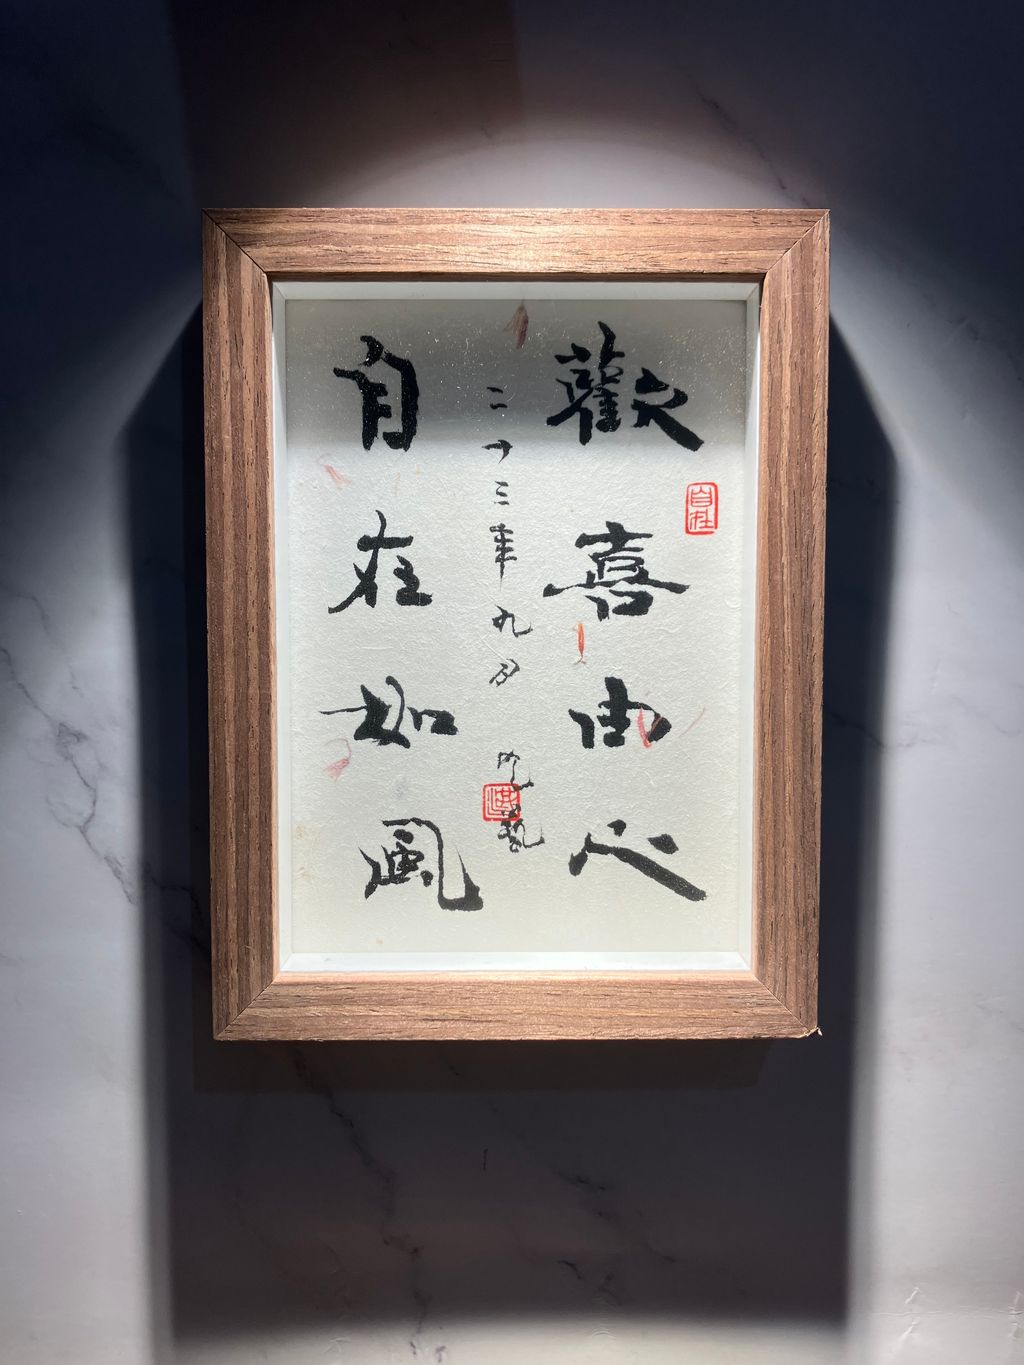 歡喜由心
自在
二〇二三年九月
自在如風